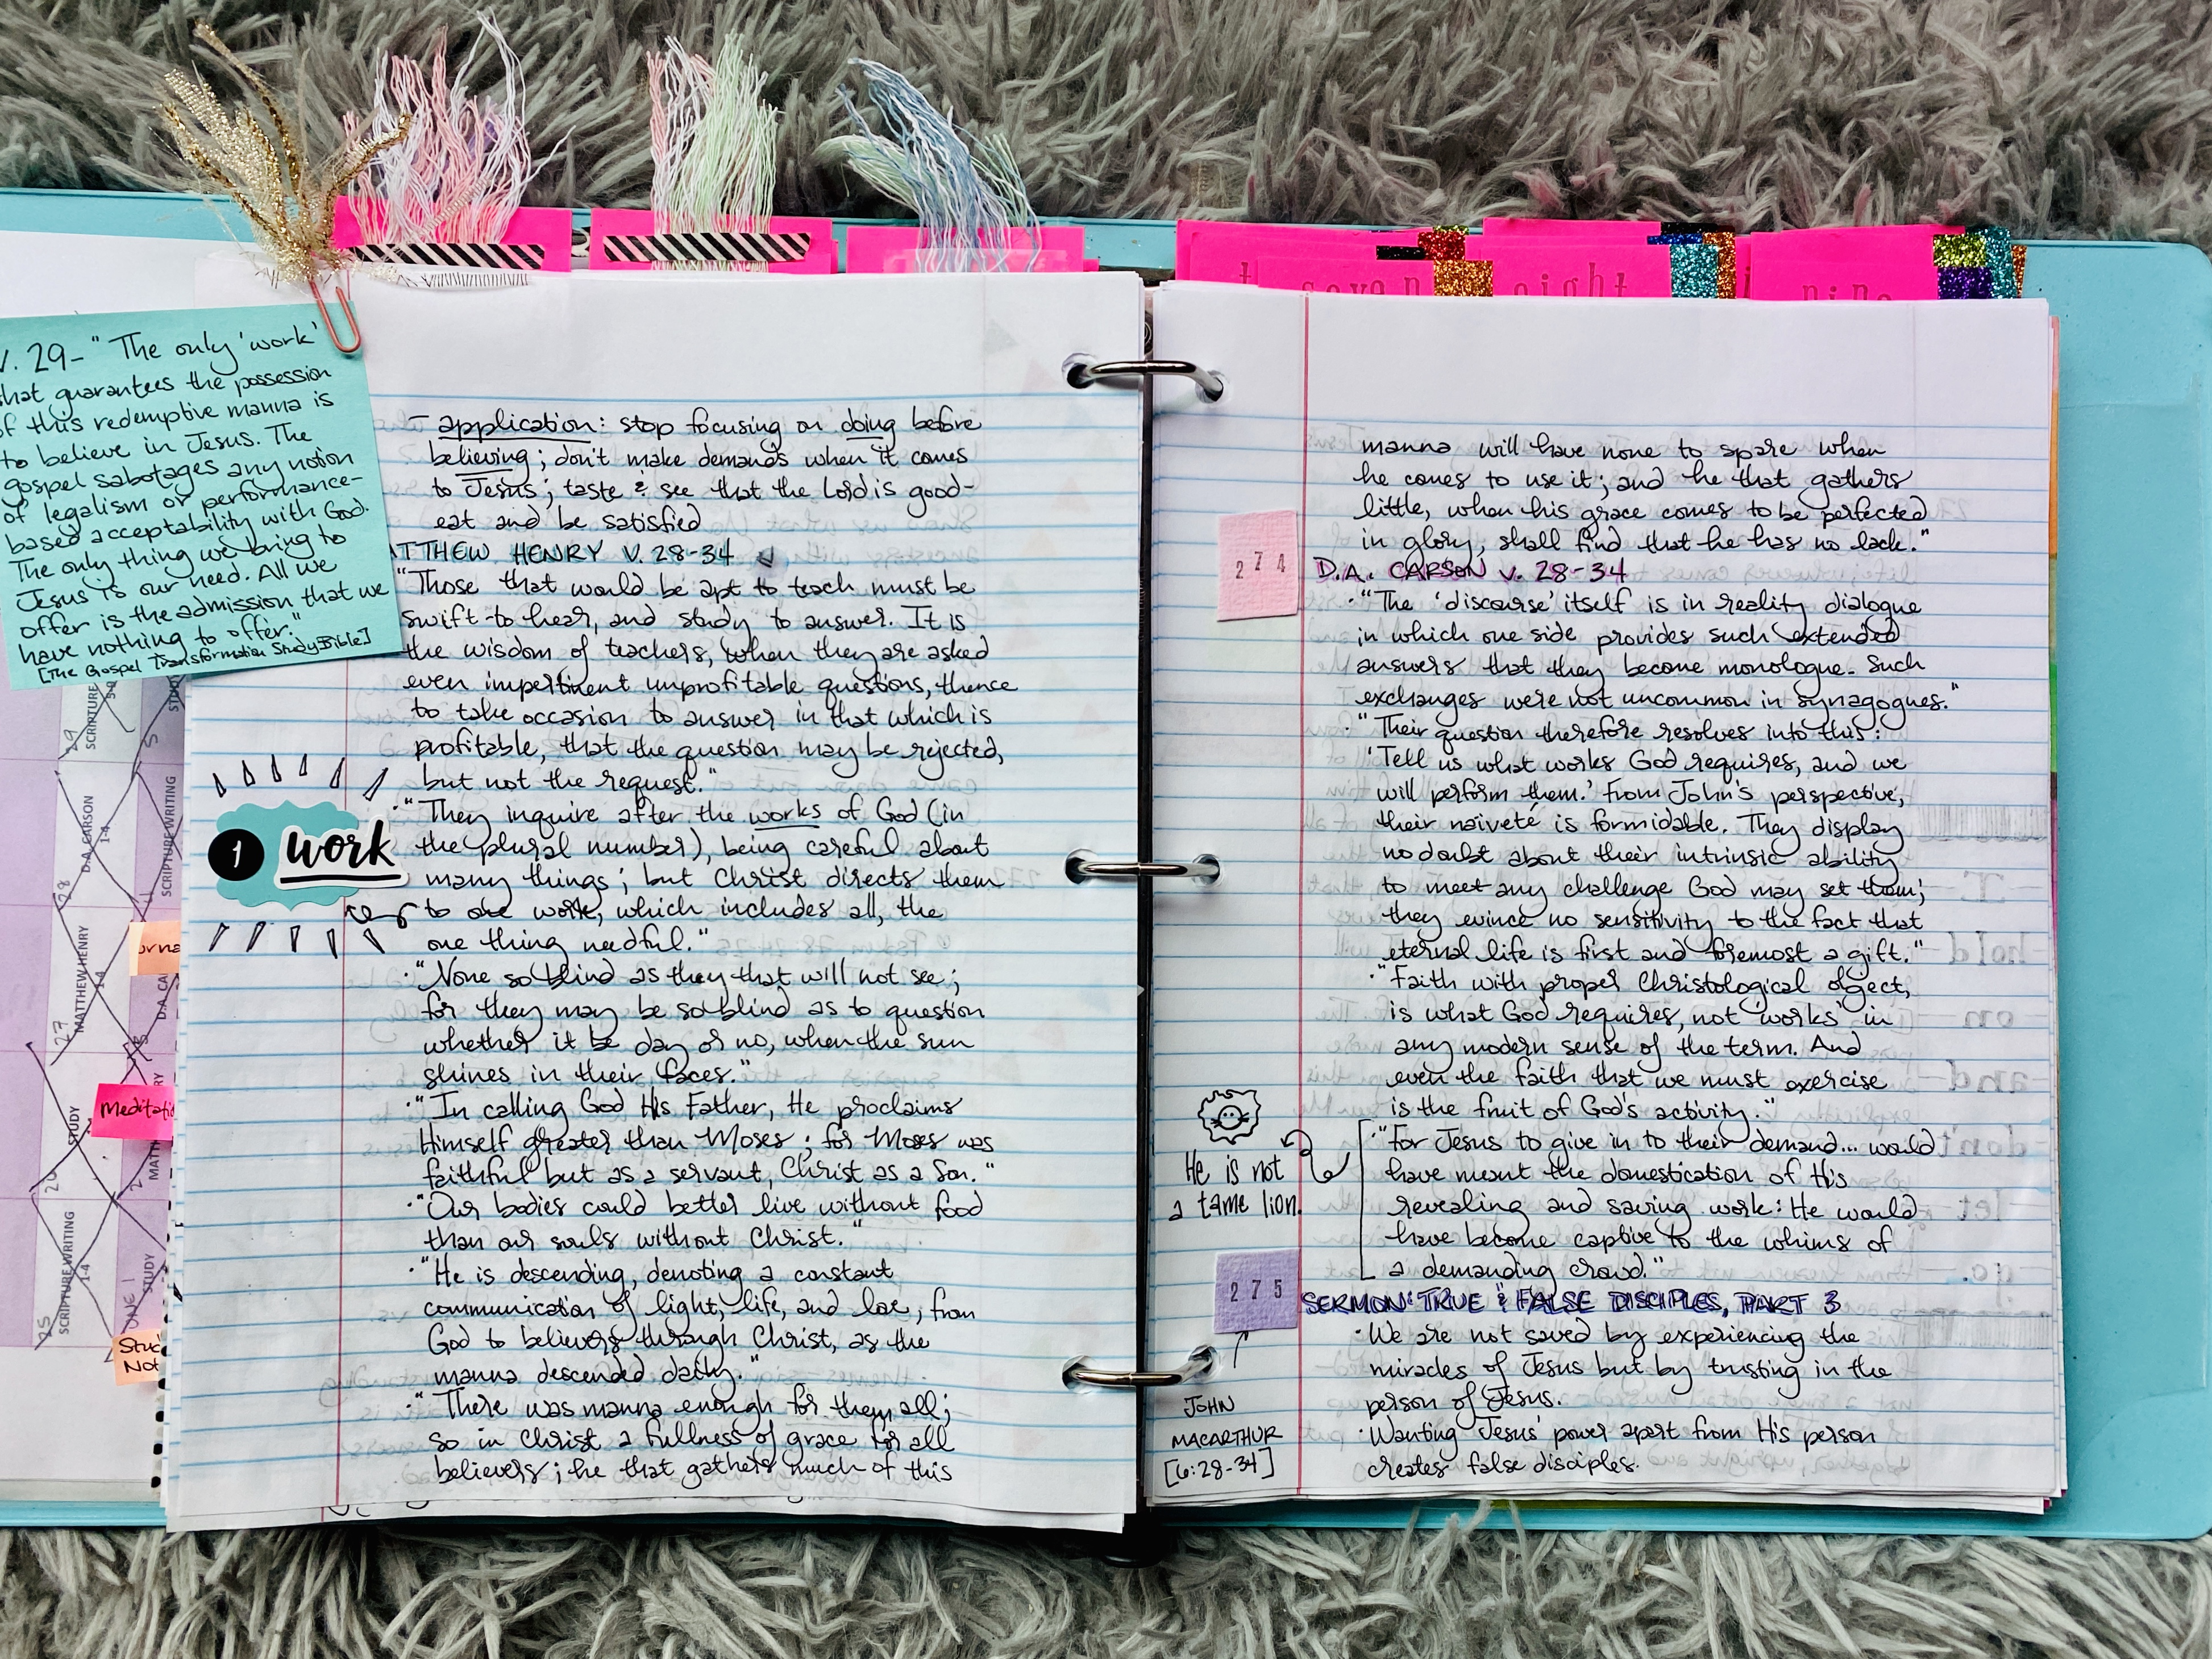 V. 29- "The only 'work'
that guarantees the possession
of this redemptive manna is
to believe in Jesus. The
gospel sabotages any notion
of legalism or performance-
based acceptability with God.
The only thing we bring to
Jesus is our need. All we
offer is the admission that we
have nothing to offer."
[The Gospel Transformation Study Bible]
- application: stop focusing on doing before
believing; don't make demands when it comes
to Jesus; taste & see that the Lord is good-
eat and be satisfied
ATTHEW HENRY V. 28-34
"Those that would be apt to teach must be
swift to hear, and study to answer. It is
the wisdom of teachers, when they are asked
even impertinent unprofitable questions, thence
to take occasion to answer in that which is
profitable, that the question may be rejected,
but not the request."
"They inquire after the works of God (in
the plural number), being careful about
many things; but Christ directs them
to one work, which includes all, the
one thing needful."
1 work
"None so blind as they that will not see;
for they may be so blind as to question
whether it be day or no, when the sun
shines in their faces."
"In calling God His Father, He proclaims
Himself greater than Moses; for Moses was
faithful but as a servant, Christ as a Son."
"Our bodies could better live without food
than our souls without Christ."
"He is descending, denoting a constant
communication of light, life, and love, from
God to believers through Christ, as the
manna descended daily."
"There was manna enough for them all;
so in Christ a fullness of grace for all
believers; he that gathers much of this
SCRIPTURE
STUDY
29
D.A. CARSON
1-4
SCRIPTURE WRITING
28
MATTHEW HENRY
1-4
D.A. CA
27
STUDY
26
SCRIPTURE WRITING
1-4
STUDY
25
Meditati
Stud
Not
seven
eight
nine
manna will have none to spare when
he comes to use it; and he that gathers
little, when his grace comes to be perfected
in glory, shall find that he has no lack."
274
D.A. CARSON v. 28-34
"The 'discourse' itself is in reality dialogue
in which one side provides such extended
answers that they become monologue. Such
exchanges were not uncommon in synagogues."
"Their question therefore resolves into this:
'Tell us what works God requires, and we
will perform them.' From John's perspective,
their naiveté is formidable. They display
no doubt about their intrinsic ability
to meet any challenge God may set them;
they evince no sensitivity to the fact that
eternal life is first and foremost a gift."
"Faith with proper Christological object,
is what God requires, not 'works' in
any modern sense of the term. And
even the faith that we must exercise
is the fruit of God's activity."
"For Jesus to give in to their demand... would
have meant the domestication of His
revealing and saving work: He would
have become captive to the whims of
a demanding crowd."
He is not
a tame lion.
275
SERMON: TRUE & FALSE DISCIPLES, PART 3
We are not saved by experiencing the
miracles of Jesus but by trusting in the
person of Jesus.
Wanting Jesus' power apart from His person
creates false disciples.
JOHN
MACARTHUR
[6:28-34]